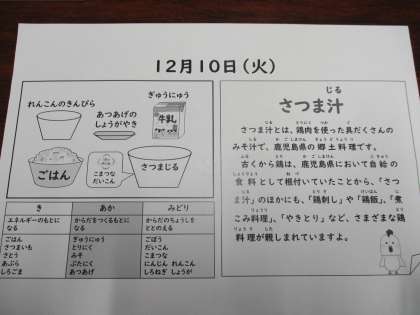 12月10日(火)
れんこんのきんぴら
あつあげの
しょうがやき
ぎゅうにゅう
牛乳
ごはん
こまつな
だいこん
さつまじる
き
あか
みどり
エネルギーのもとに
なる
からだをつくるもとに
なる
からだのちょうしを
ととのえる
ごはん
さつまいも
さとう
あぶら
しろごま
ぎゅうにゅう
とりにく
みそ
ぶたにく
あつあげ
ごぼう
だいこん
こまつな
にんじん れんこん
しろねぎ しょうが
じる
さつま汁
さつま汁とは、鶏肉を使った具だくさんの
みそ汁で、鹿児島県の郷土料理です。
古くから鶏は、鹿児島県において自給の
食料として根付いていたことから、「さつ
ま汁」のほかにも、「鶏刺し」や「鶏飯」、「煮
こみ料理」、「やきとり」など、さまざまな鶏
料理が親しまれていますよ。